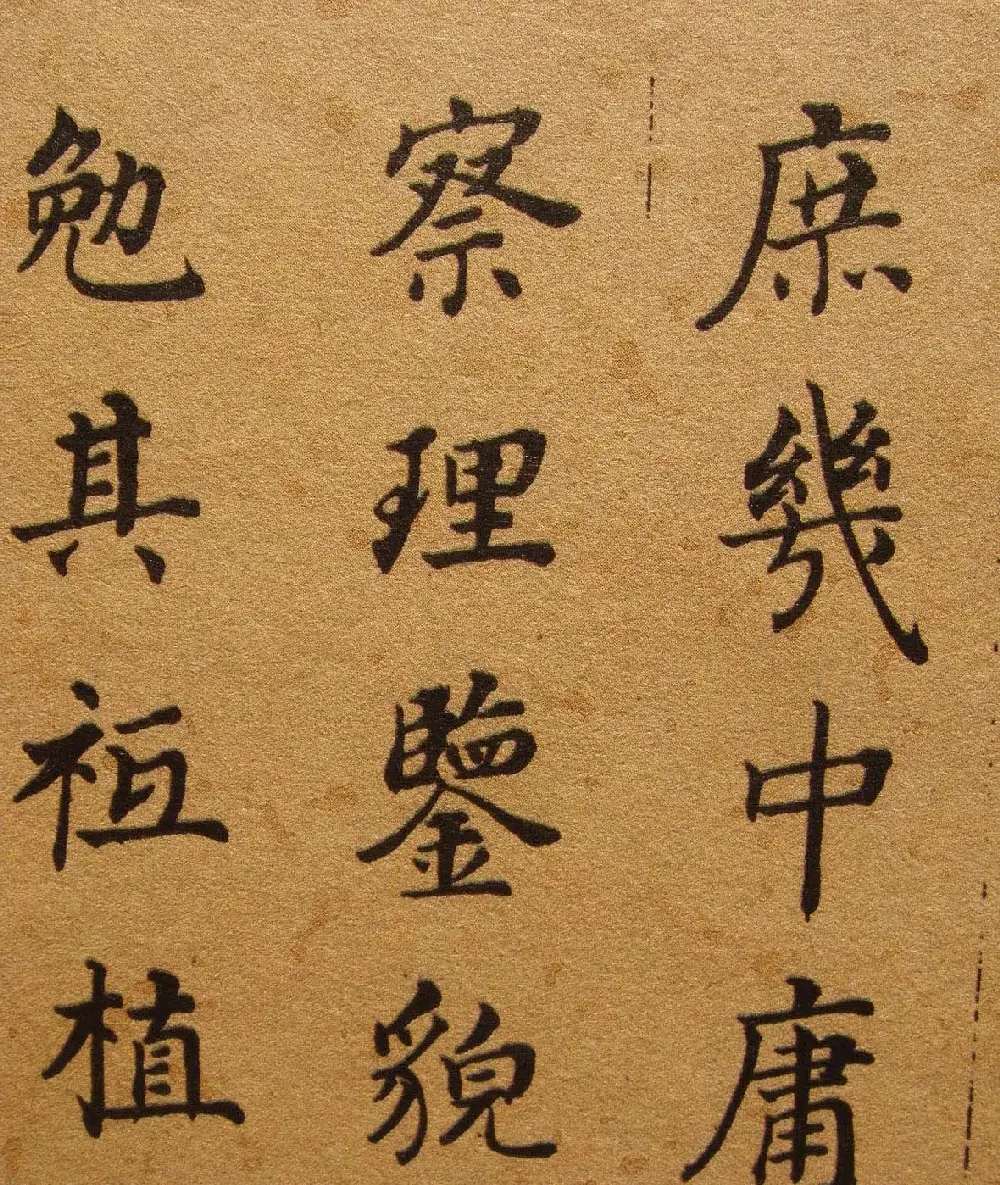 庶幾中庸
察理鑒貌
勉其祗植